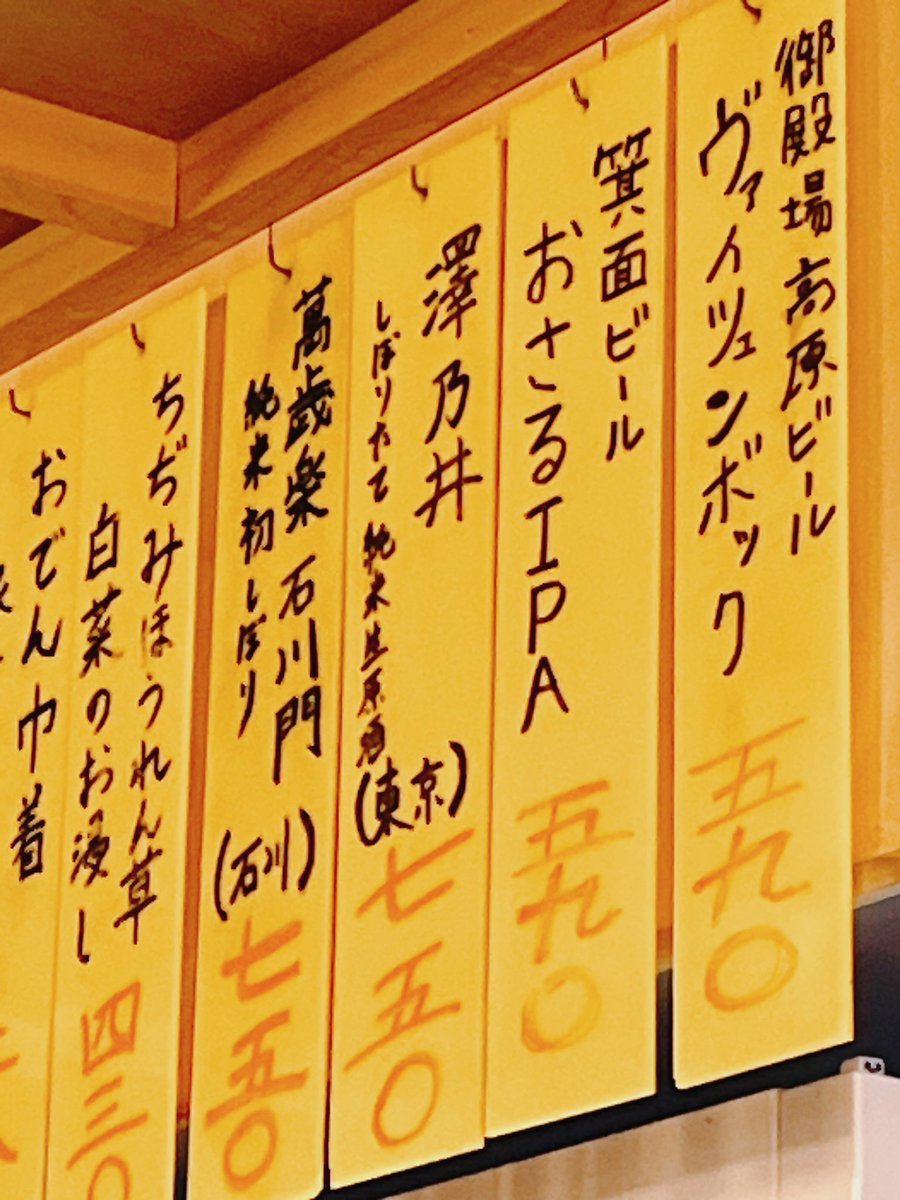 御殿場高原ビール
ヴァイツェンボック
五九〇
箕面ビール
おさるIPA
五九〇
澤乃井
しぼりたて純米生原酒
(東京)
七五〇
萬歳楽 石川門
純米初しぼり
(石川)
七五〇
ちぢみほうれん草
白菜のお浸し
四三〇
おでん巾着